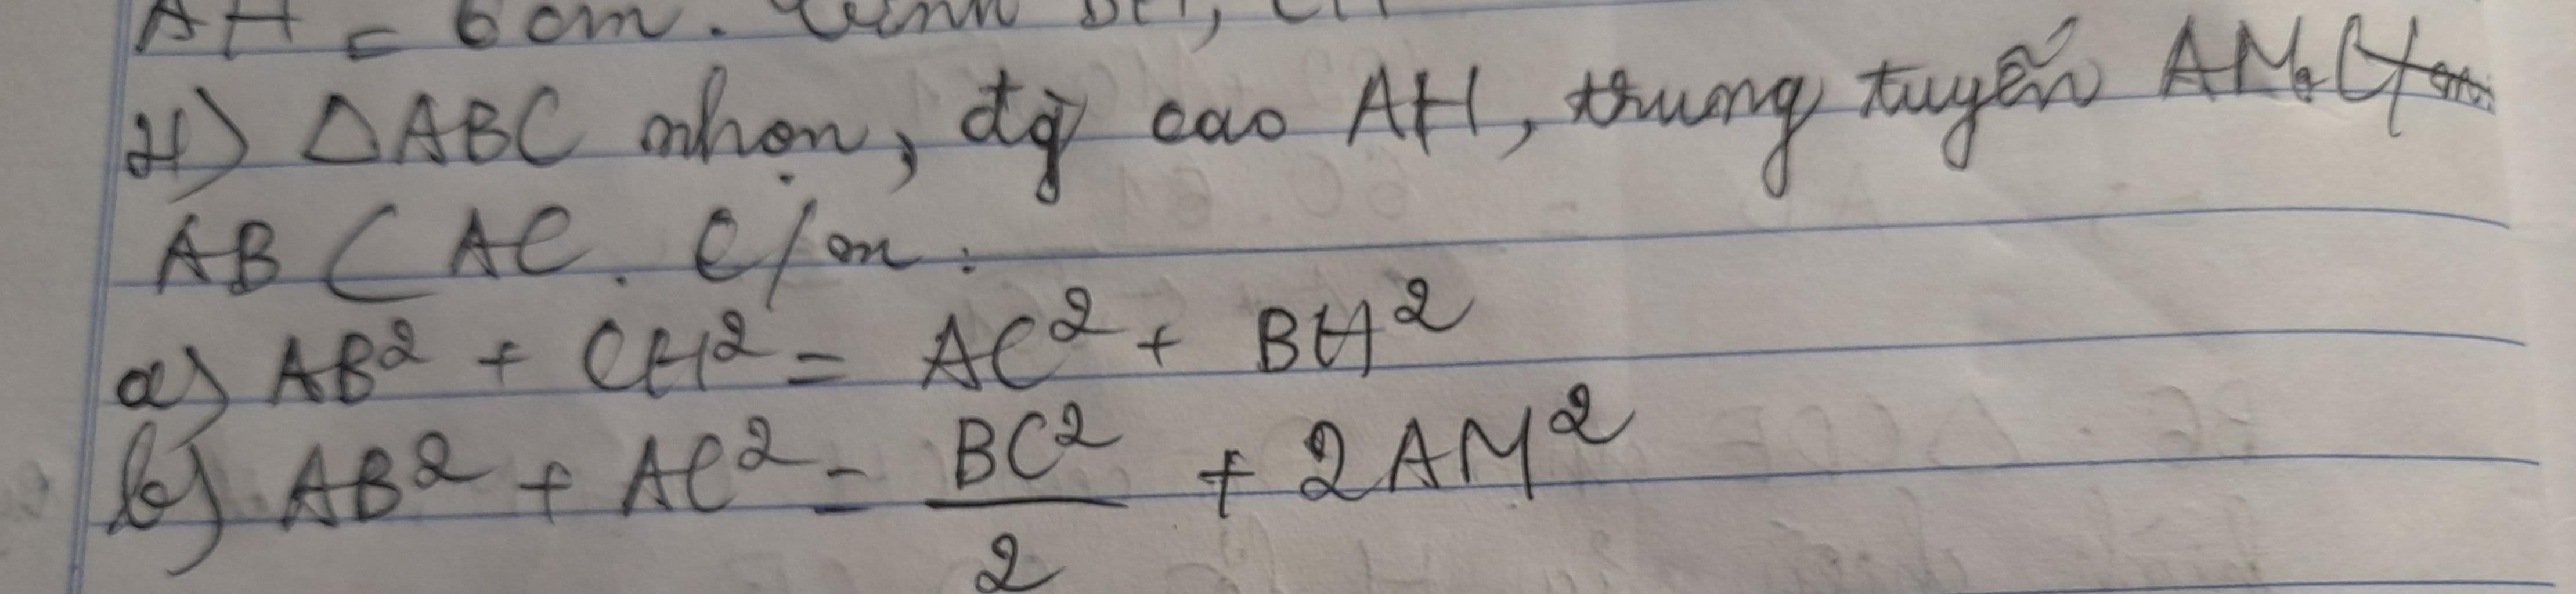 AH = 6 cm. Tính BH, CH
4) △ABC nhọn, đg cao AH, trung tuyến AM.
AB < AC. C/m:
a) AB² + CH² = AC² + BH²
b) AB² + AC² = BC²/2 + 2AM²